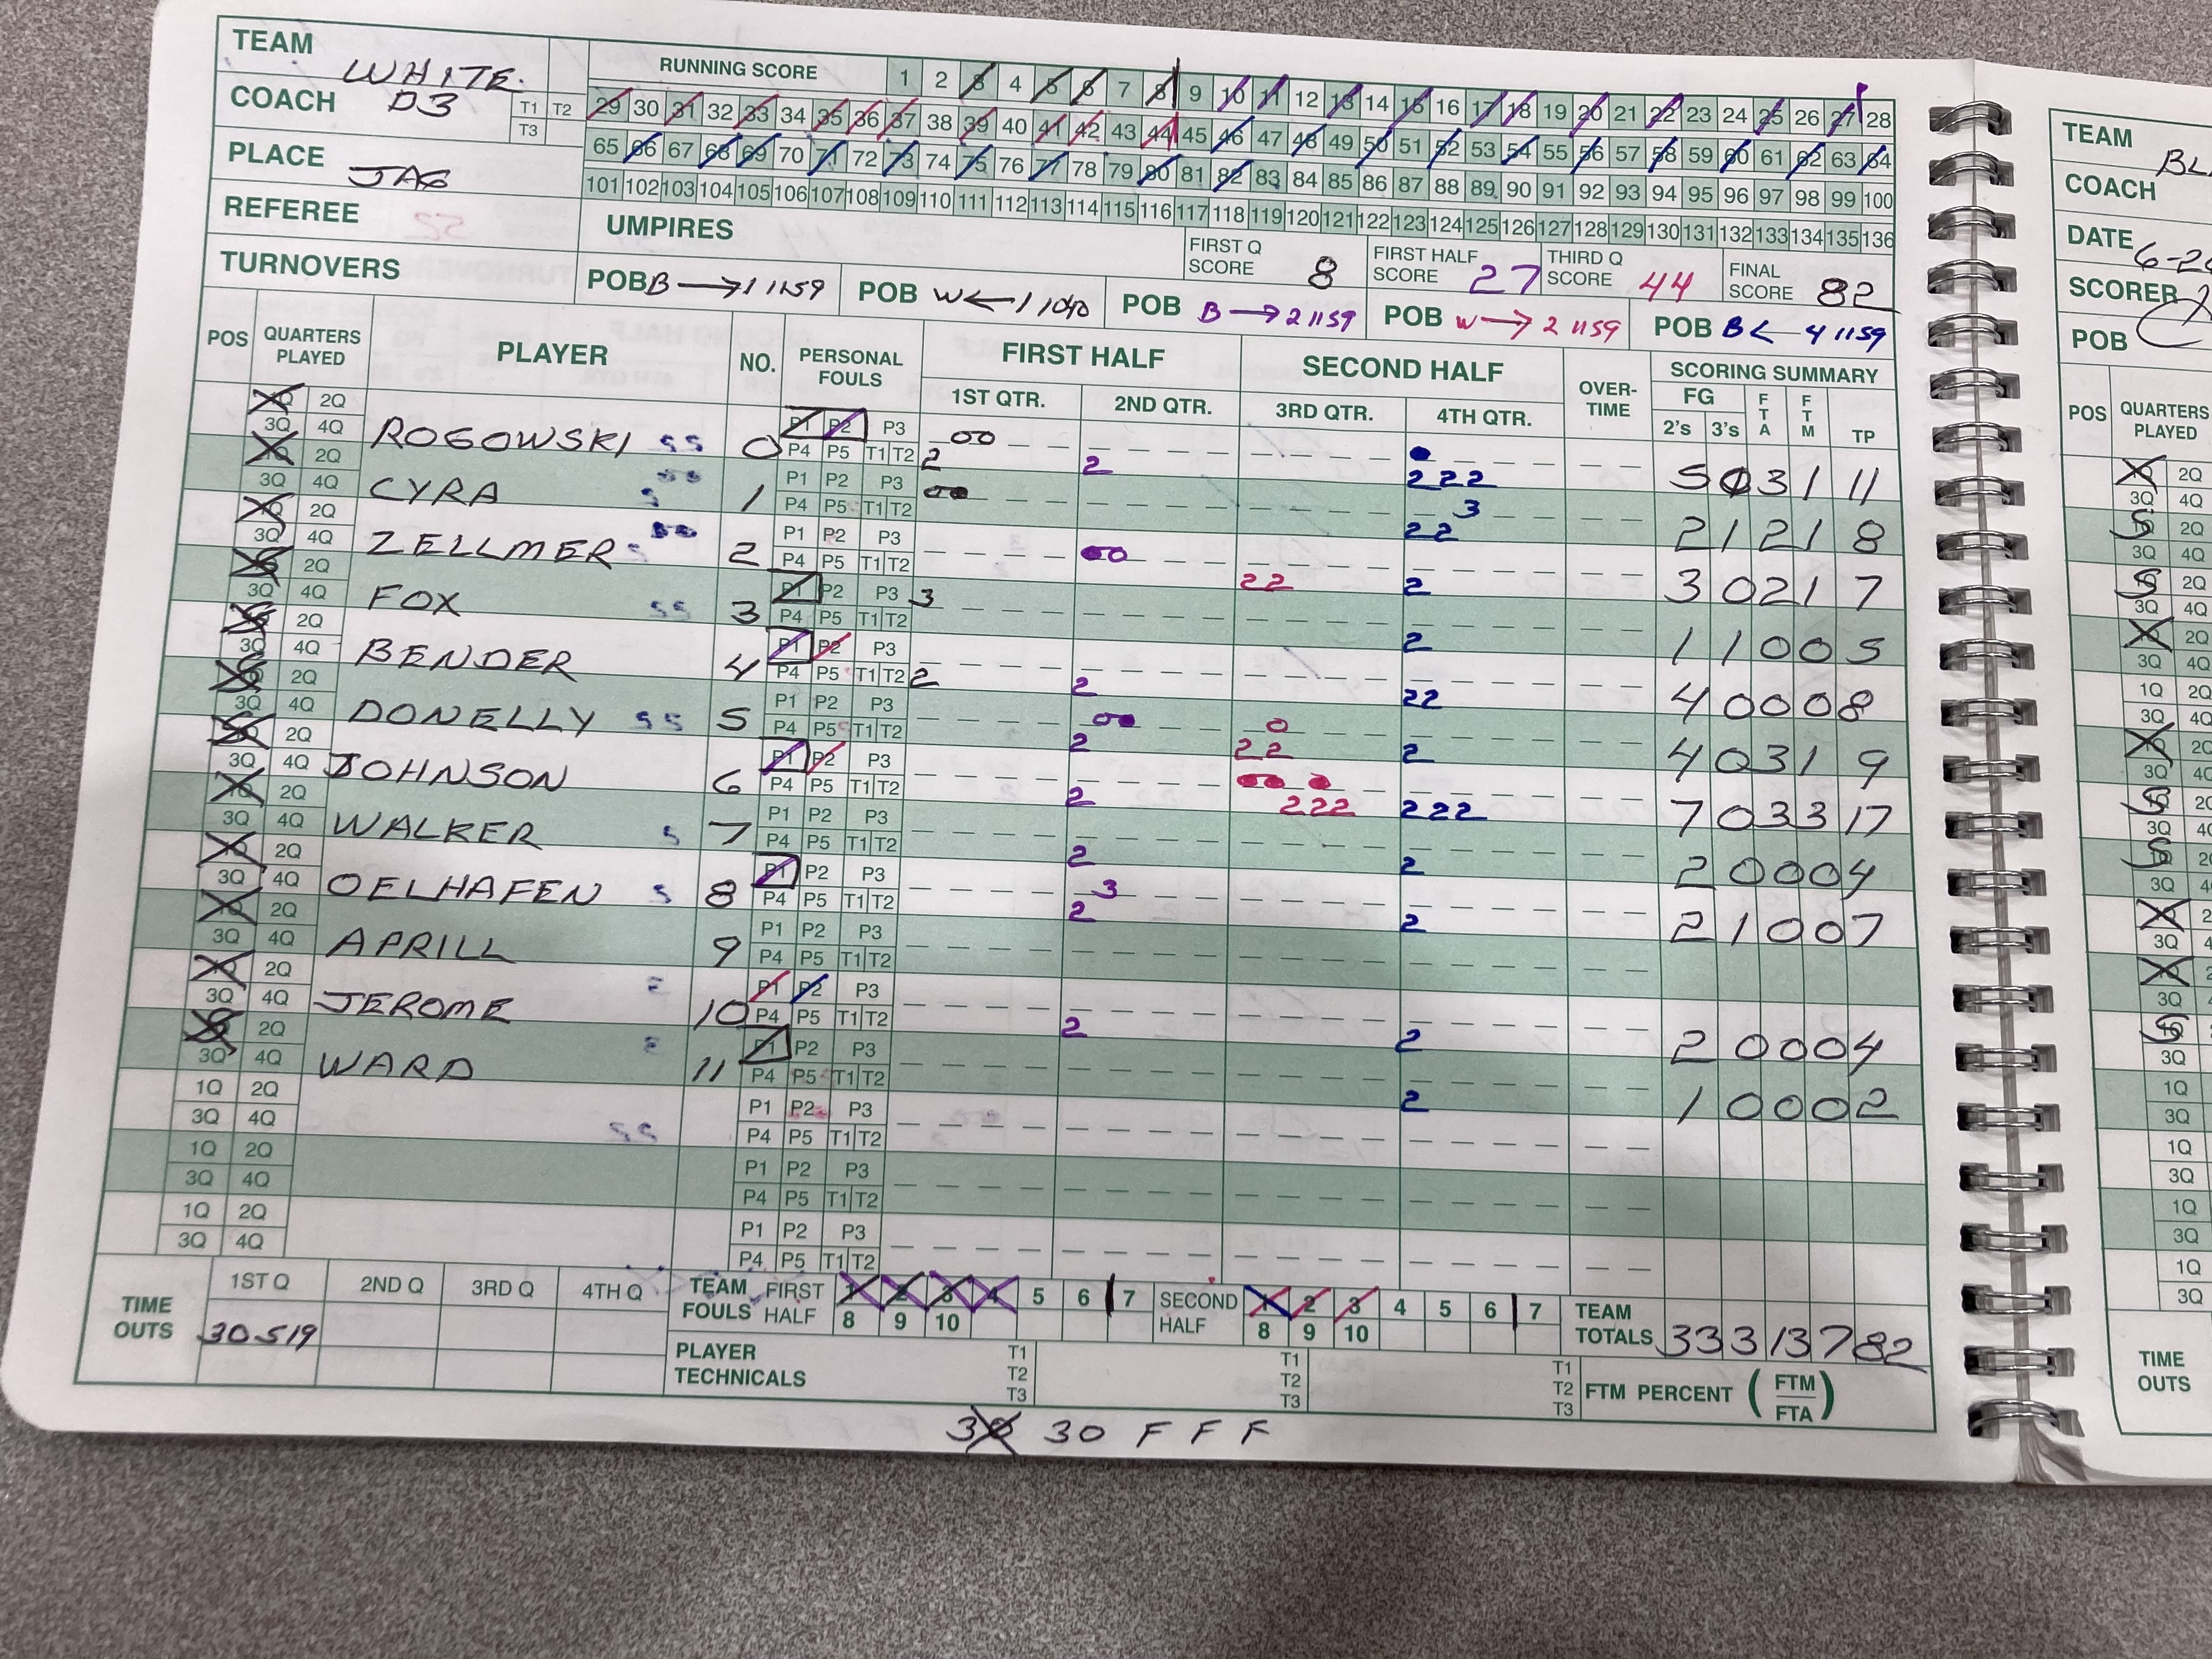 TEAM WHITE
RUNNING SCORE 1 2 3 4 5 6 7 8 9 10 11 12 13 14 15 16 17 18 19 20 21 22 23 24 25 26 27 28
COACH D3 T1 T2 T3
29 30 31 32 33 34 35 36 37 38 39 40 41 42 43 44 45 46 47 48 49 50 51 52 53 54 55 56 57 58 59 60 61 62 63 64
PLACE JAG
65 66 67 68 69 70 71 72 73 74 75 76 77 78 79 80 81 82 83 84 85 86 87 88 89 90 91 92 93 94 95 96 97 98 99 100
101 102 103 104 105 106 107 108 109 110 111 112 113 114 115 116 117 118 119 120 121 122 123 124 125 126 127 128 129 130 131 132 133 134 135 136
REFEREE UMPIRES FIRST Q SCORE 8 FIRST HALF SCORE 27 THIRD Q SCORE 44 FINAL SCORE 82
TURNOVERS POB B → 1 1159 POB W ← 1 1040 POB B → 2 1159 POB W → 2 1159 POB B ← 4 1159
POS QUARTERS PLAYED PLAYER NO. PERSONAL FOULS FIRST HALF SECOND HALF OVER-TIME SCORING SUMMARY
1ST QTR. 2ND QTR. 3RD QTR. 4TH QTR. FG 2's 3's FTA FTM TP
1Q 2Q 3Q 4Q ROGOWSKI 0 P1 P2 P3 P4 P5 T1 T2 2 2 2 2 2 5 0 3 1 11
1Q 2Q 3Q 4Q CYRA 1 P1 P2 P3 P4 P5 T1 T2 2 2 3 2 1 2 1 8
1Q 2Q 3Q 4Q ZELLMER 2 P1 P2 P3 P4 P5 T1 T2 2 2 2 3 0 2 1 7
1Q 2Q 3Q 4Q FOX 3 P1 P2 P3 P4 P5 T1 T2 3 2 1 1 0 0 5
1Q 2Q 3Q 4Q BENDER 4 P1 P2 P3 P4 P5 T1 T2 2 2 2 2 4 0 0 0 8
1Q 2Q 3Q 4Q DONELLY 5 P1 P2 P3 P4 P5 T1 T2 2 2 2 2 4 0 3 1 9
1Q 2Q 3Q 4Q JOHNSON 6 P1 P2 P3 P4 P5 T1 T2 2 2 2 2 2 2 2 7 0 3 3 17
1Q 2Q 3Q 4Q WALKER 7 P1 P2 P3 P4 P5 T1 T2 2 2 2 0 0 0 4
1Q 2Q 3Q 4Q OELHAFEN 8 P1 P2 P3 P4 P5 T1 T2 2 3 2 2 1 0 0 7
1Q 2Q 3Q 4Q APRILL 9 P1 P2 P3 P4 P5 T1 T2
1Q 2Q 3Q 4Q JEROME 10 P1 P2 P3 P4 P5 T1 T2 2 2 2 0 0 0 4
1Q 2Q 3Q 4Q WARD 11 P1 P2 P3 P4 P5 T1 T2 2 1 0 0 0 2
1Q 2Q 3Q 4Q P1 P2 P3 P4 P5 T1 T2
1Q 2Q 3Q 4Q P1 P2 P3 P4 P5 T1 T2
1Q 2Q 3Q 4Q P1 P2 P3 P4 P5 T1 T2
TIME OUTS 1ST Q 2ND Q 3RD Q 4TH Q
30 519
TEAM FOULS FIRST HALF 1 2 3 4 5 6 7 8 9 10 SECOND HALF 1 2 3 4 5 6 7 8 9 10 TEAM TOTALS 33 3 13 7 82
PLAYER TECHNICALS T1 T2 T3 T1 T2 T3 T1 T2 T3 FTM PERCENT (FTM/FTA)
30 30 F F F
TEAM BL
COACH
DATE 6-2
SCORER
POB
POS QUARTERS PLAYED
TIME OUTS